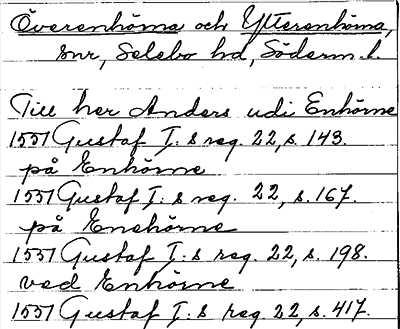 Överenhörna och Ytterenhörna,
snr, Selebo hd, Söderm. l.
Till her Anders udi Enhörne
1551 Gustaf I: s reg. 22, s. 143.
på Enhörne
1551 Gustaf I: s reg. 22, s. 167.
på Enehörne
1551 Gustaf I: s reg. 22, s. 198.
ved Enhörne
1551 Gustaf I: s reg. 22, s. 417.